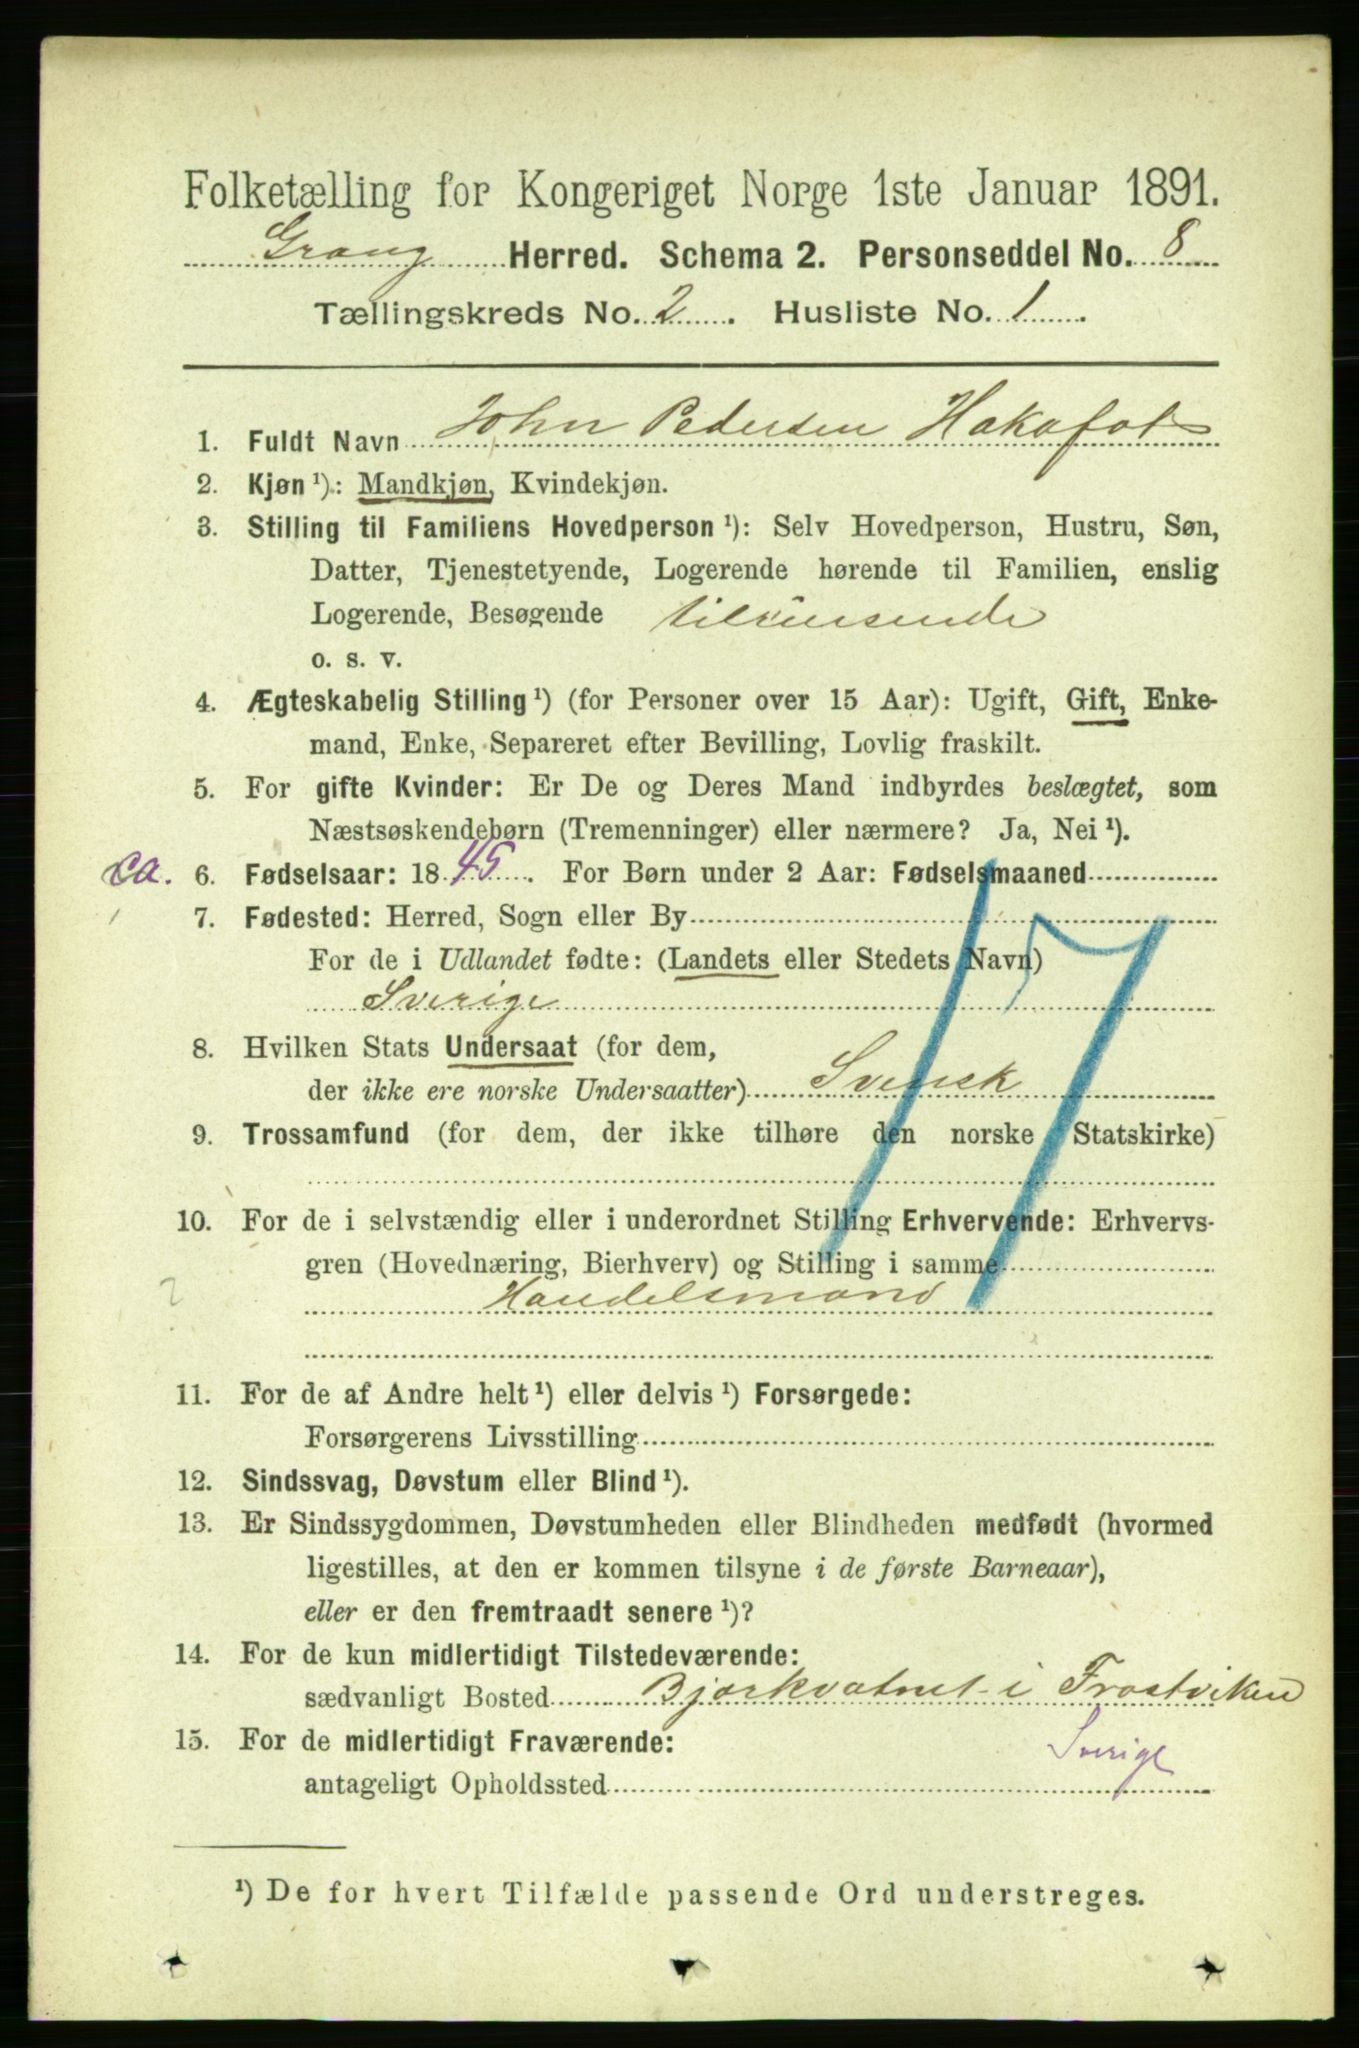 Folketælling for Kongeriget Norge 1ste Januar 1891.
Grong Herred. Schema 2. Personseddel No. 8
Tællingskreds No. 2. Husliste No. 1.
1. Fuldt Navn John Pedersen Hakafot
2. Kjøn ¹): Mandkjøn, Kvindekjøn.
3. Stilling til Familiens Hovedperson ¹): Selv Hovedperson, Hustru, Søn,
Datter, Tjenestetyende, Logerende hørende til Familien, enslig
Logerende, Besøgende tilreisende
o. s. v.
4. Ægteskabelig Stilling ¹) (for Personer over 15 Aar): Ugift, Gift, Enke-
mand, Enke, Separeret efter Bevilling, Lovlig fraskilt.
5. For gifte Kvinder: Er De og Deres Mand indbyrdes beslægtet, som
Næstsøskendebørn (Tremenninger) eller nærmere? Ja, Nei ¹).
ca. 6. Fødselsaar: 1845. For Børn under 2 Aar: Fødselsmaaned
7. Fødested: Herred, Sogn eller By
For de i Udlandet fødte: (Landets eller Stedets Navn)
Sverige
8. Hvilken Stats Undersaat (for dem,
der ikke ere norske Undersaatter) Svensk
9. Trossamfund (for dem, der ikke tilhøre den norske Statskirke)
17
10. For de i selvstændig eller i underordnet Stilling Erhvervende: Erhvervs-
gren (Hovednæring, Bierhverv) og Stilling i samme
Handelsmand
11. For de af Andre helt ¹) eller delvis ¹) Forsørgede:
Forsørgerens Livsstilling
12. Sindssvag, Døvstum eller Blind ¹).
13. Er Sindssygdommen, Døvstumheden eller Blindheden medfødt (hvormed
ligestilles, at den er kommen tilsyne i de første Barneaar),
eller er den fremtraadt senere ¹)?
14. For de kun midlertidigt Tilstedeværende:
sædvanligt Bosted Bjorkvatnet i Frostviken
15. For de midlertidigt Fraværende: Sverige
antageligt Opholdssted
¹) De for hvert Tilfælde passende Ord understreges.